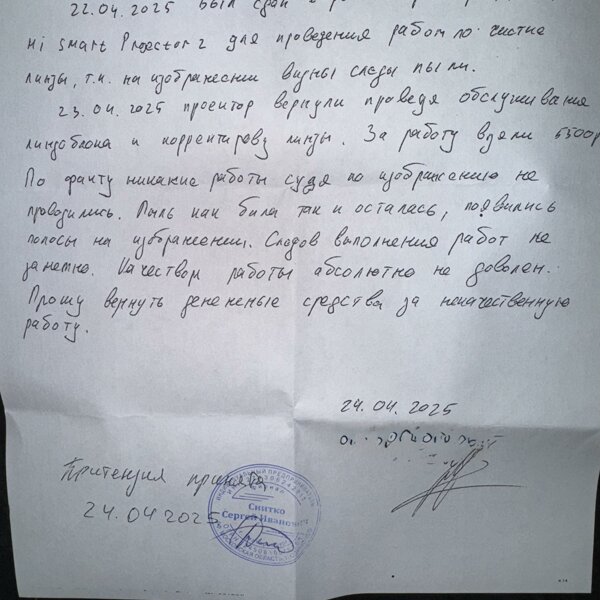 22.04.2025 был сдан в
mi smart Projector 2 для проведения работ по чистке
линзы, т.к. на изображении видны следы пыли.
23.04.2025 проектор вернули проведя обслуживание
линзоблока и корректировку линзы. За работу взяли 6500р
По факту никакие работы судя по изображению не
проводились. Пыль как была так и осталась, появились
полосы на изображении. Следов выполнения работ не
заметно. Качеством работы абсолютно не доволен.
Прошу вернуть денежные средства за некачественную
работу.
24.04.2025
Притензия принята
24.04.2025
ИНДИВИДУАЛЬНЫЙ ПРЕДПРИНИМАТЕЛЬ
Снитко
Сергей Иванович